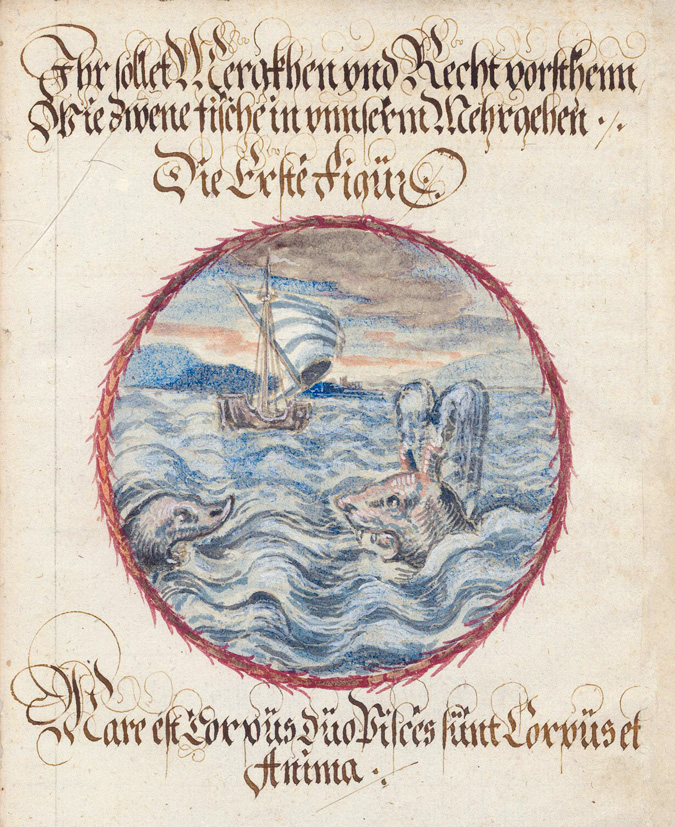 Ihr sollet Mergkhen vnd Recht vorsthenn
Wie zwene fische in vnnserm Mehr gehen ·/.
Die Erste Figür
Mare est Corpüs düo Pisces sünt Corpüs et
Anima ·: